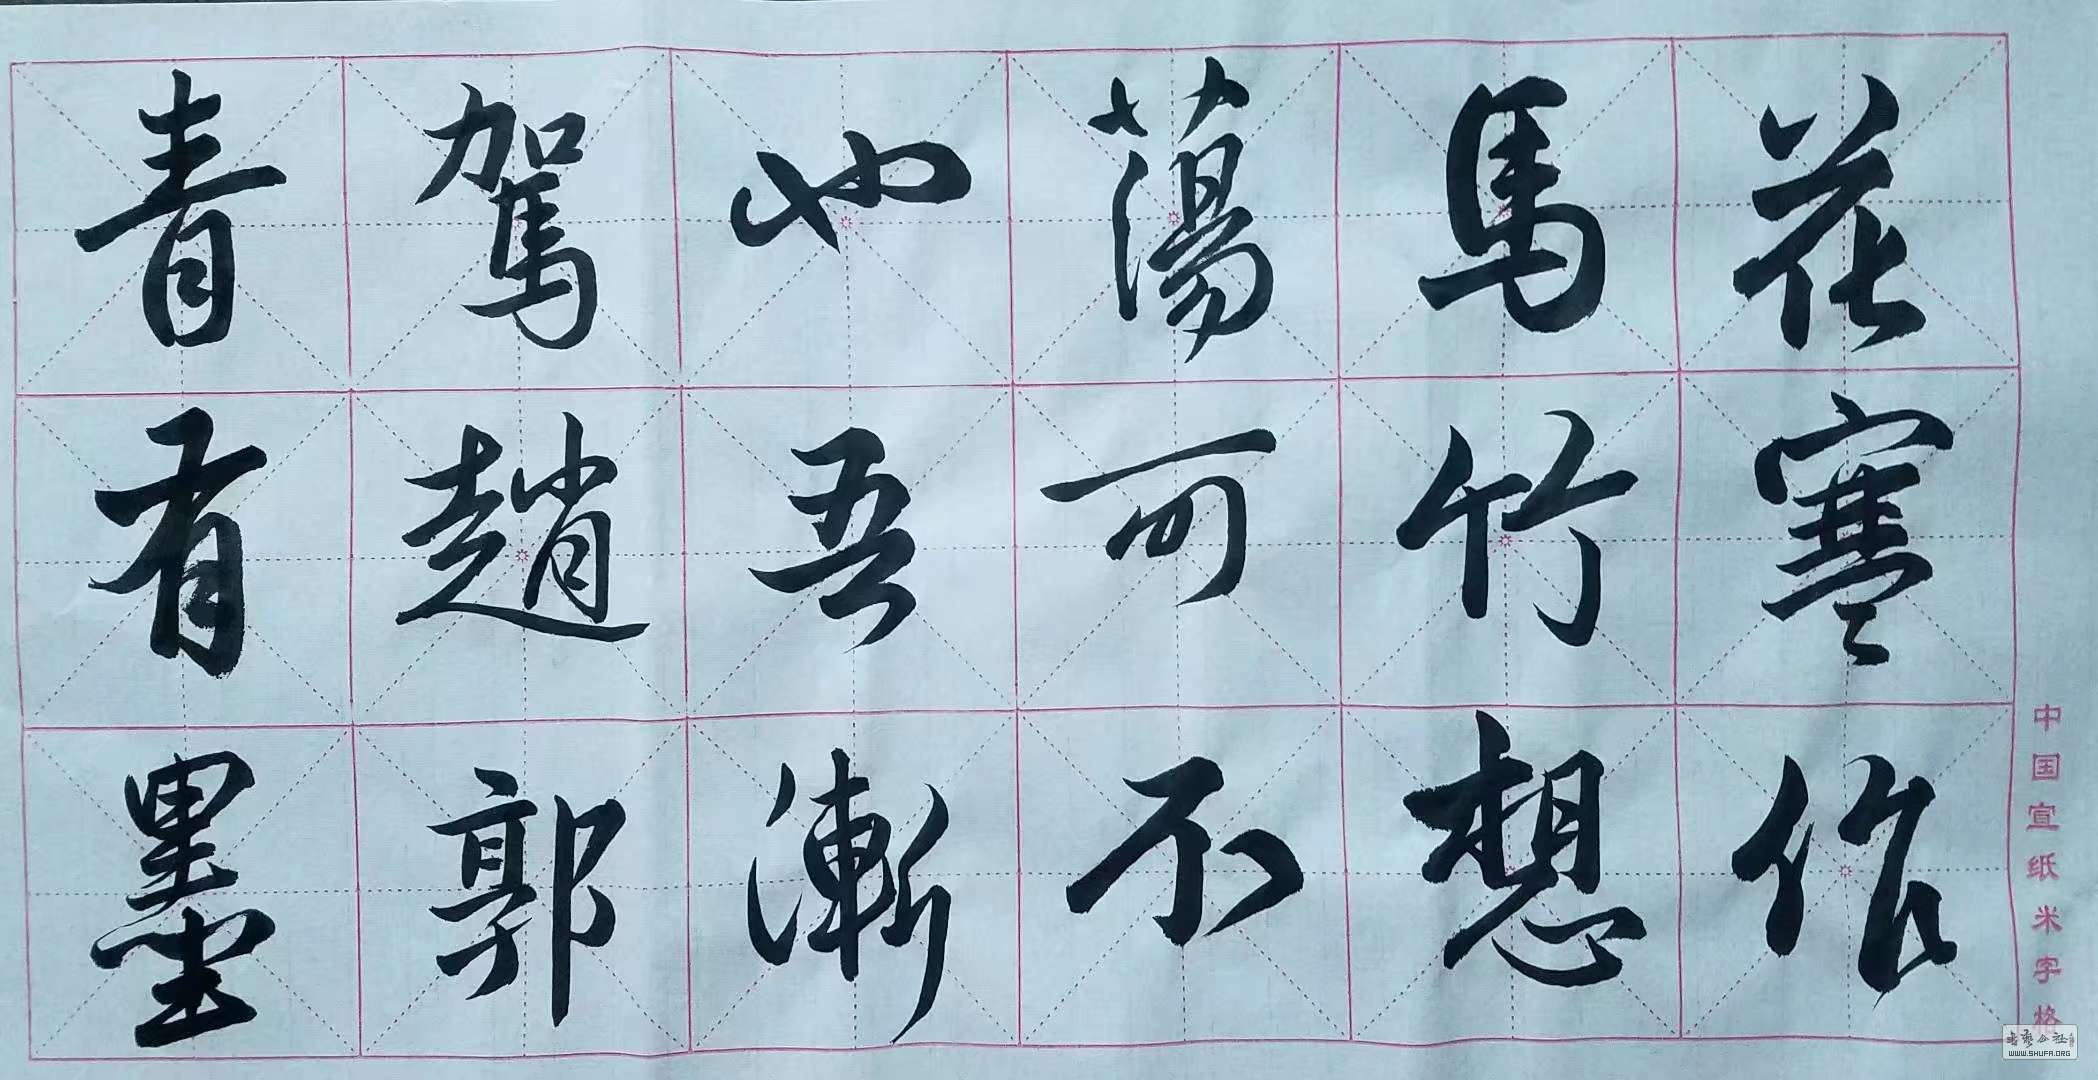 花寒作
馬竹想
蕩可不
也吾漸
駕趙郭
青有墨
中国宣纸米字格
書藝公社
WWW.SHUFA.ORG